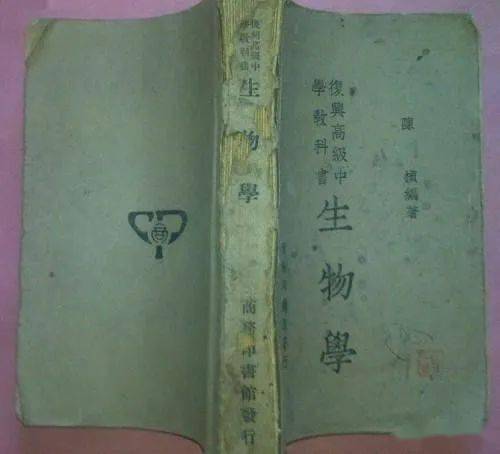 陳楨編著
復興高級中
學教科書
生物學
復興高級中
生物學
商務印書館發行